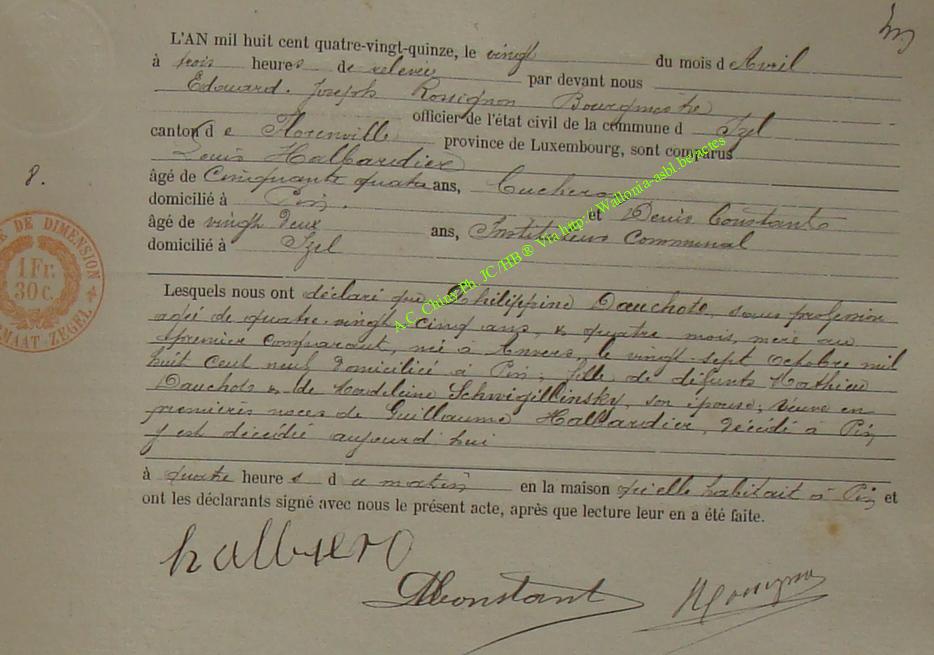 L'AN mil huit cent quatre-vingt-quinze, le vingt du mois d Avril
à trois heures de relevée par devant nous
Edouard Joseph Rossignon Bourgmestre
officier de l'état civil de la commune d Izel
canton d e Florenville province de Luxembourg, sont comparus
Louis Halbardier
âgé de Cinquante quatre ans,
domicilié à Pin. et Denis Constant
âgé de vingt deux ans, Instituteur Communal
domicilié à Izel
8.
DE DIMENSION
1 Fr.
30 c.
MAAT-ZEGEL
A.C. Chiny Ph. JC/HB ® Via http://Wallonia-asbl.be/actes
Lesquels nous ont déclaré que Philippine Dauchots, sans profession
agée de quatre vingt cinq ans, & quatre mois, mère au
premier comparant, née à Anvers, le vingt-sept Octobre mil
huit cent neuf, domiciliée à Pin, fille de défunts Mathieu
Dauchots & de Madeleine son épouse, veuve en
premières noces de Guillaume Halbardier, décédé à Pin
y est décédée aujourd'hui
à quatre heures d u matin en la maison qu'elle habitait à Pin et
ont les déclarants signé avec nous le présent acte, après que lecture leur en a été faite.
DConstant
Rossignon